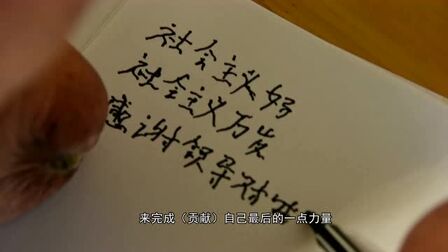 社会主义好
社会主义万岁
感谢领导对
来完成（贡献）自己最后的一点力量